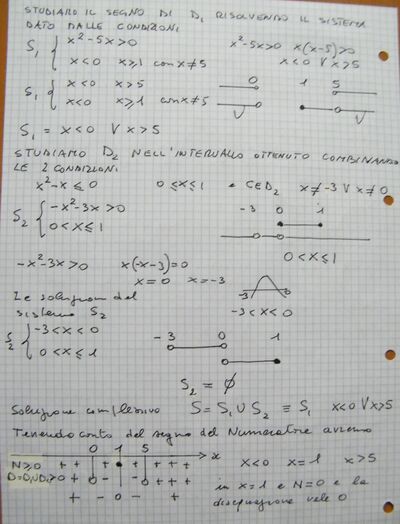 STUDIAMO IL SEGNO DI D₁ RISOLVENDO IL SISTEMA
DATO DALLE CONDIZIONI
S₁ { x²-5x>0    x²-5x>0  x(x-5)>0
x<0  x≥1 con x≠5    x<0 V x>5
S₁ { x<0  x>5    0  1  5
x<0  x≥1 con x≠5
S₁ = x<0 V x>5
STUDIAMO D₂ NELL'INTERVALLO OTTENUTO COMBINANDO
LE 2 CONDIZIONI
x²-x≤0    0≤x≤1  e CED₂  x≠-3 V x≠0
S₂ { -x²-3x>0    -3  0  1
0<x≤1
0<x≤1
-x²-3x>0  x(-x-3)=0
x=0  x=-3    -3  0
Le soluzioni del    -3<x<0
sistema S₂
S₂ { -3<x<0    -3  0  1
0<x≤1
S₂ = ∅
Soluzione complessiva  S=S₁∪S₂ ≡ S₁  x<0 V x>5
Tenendo conto del segno del Numeratore avremo
0  1  5  x    x<0  x=1  x>5
N≥0 + + + • + + + + +
D=D₁∪D₂>0 + + - - + + +    in x=1 è N=0 e la
+ - 0 - +    disequazione vale 0